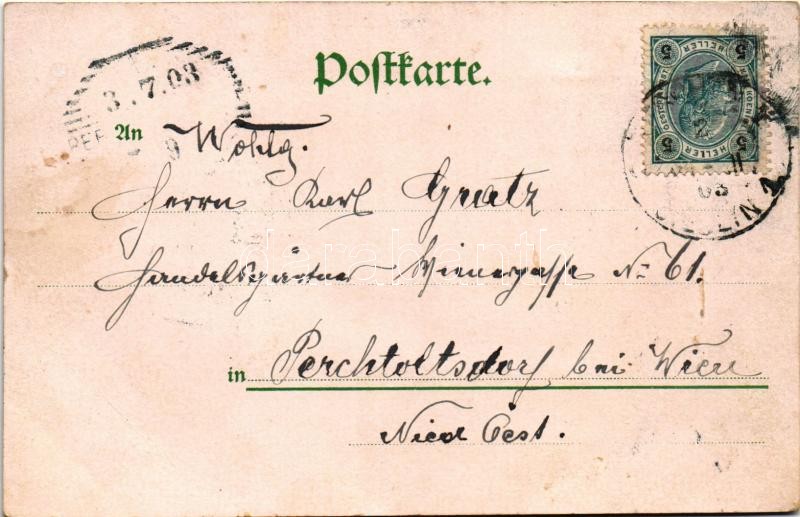 Postkarte.
3.7.03
An Wohlg.
Herrn Karl Gratz
Handelsgärtner Wienergasse No 61.
in Perchtoltsdorf bei Wien
Nied Oest.
5 HELLER 5
5 HELLER 5
03
darabanth